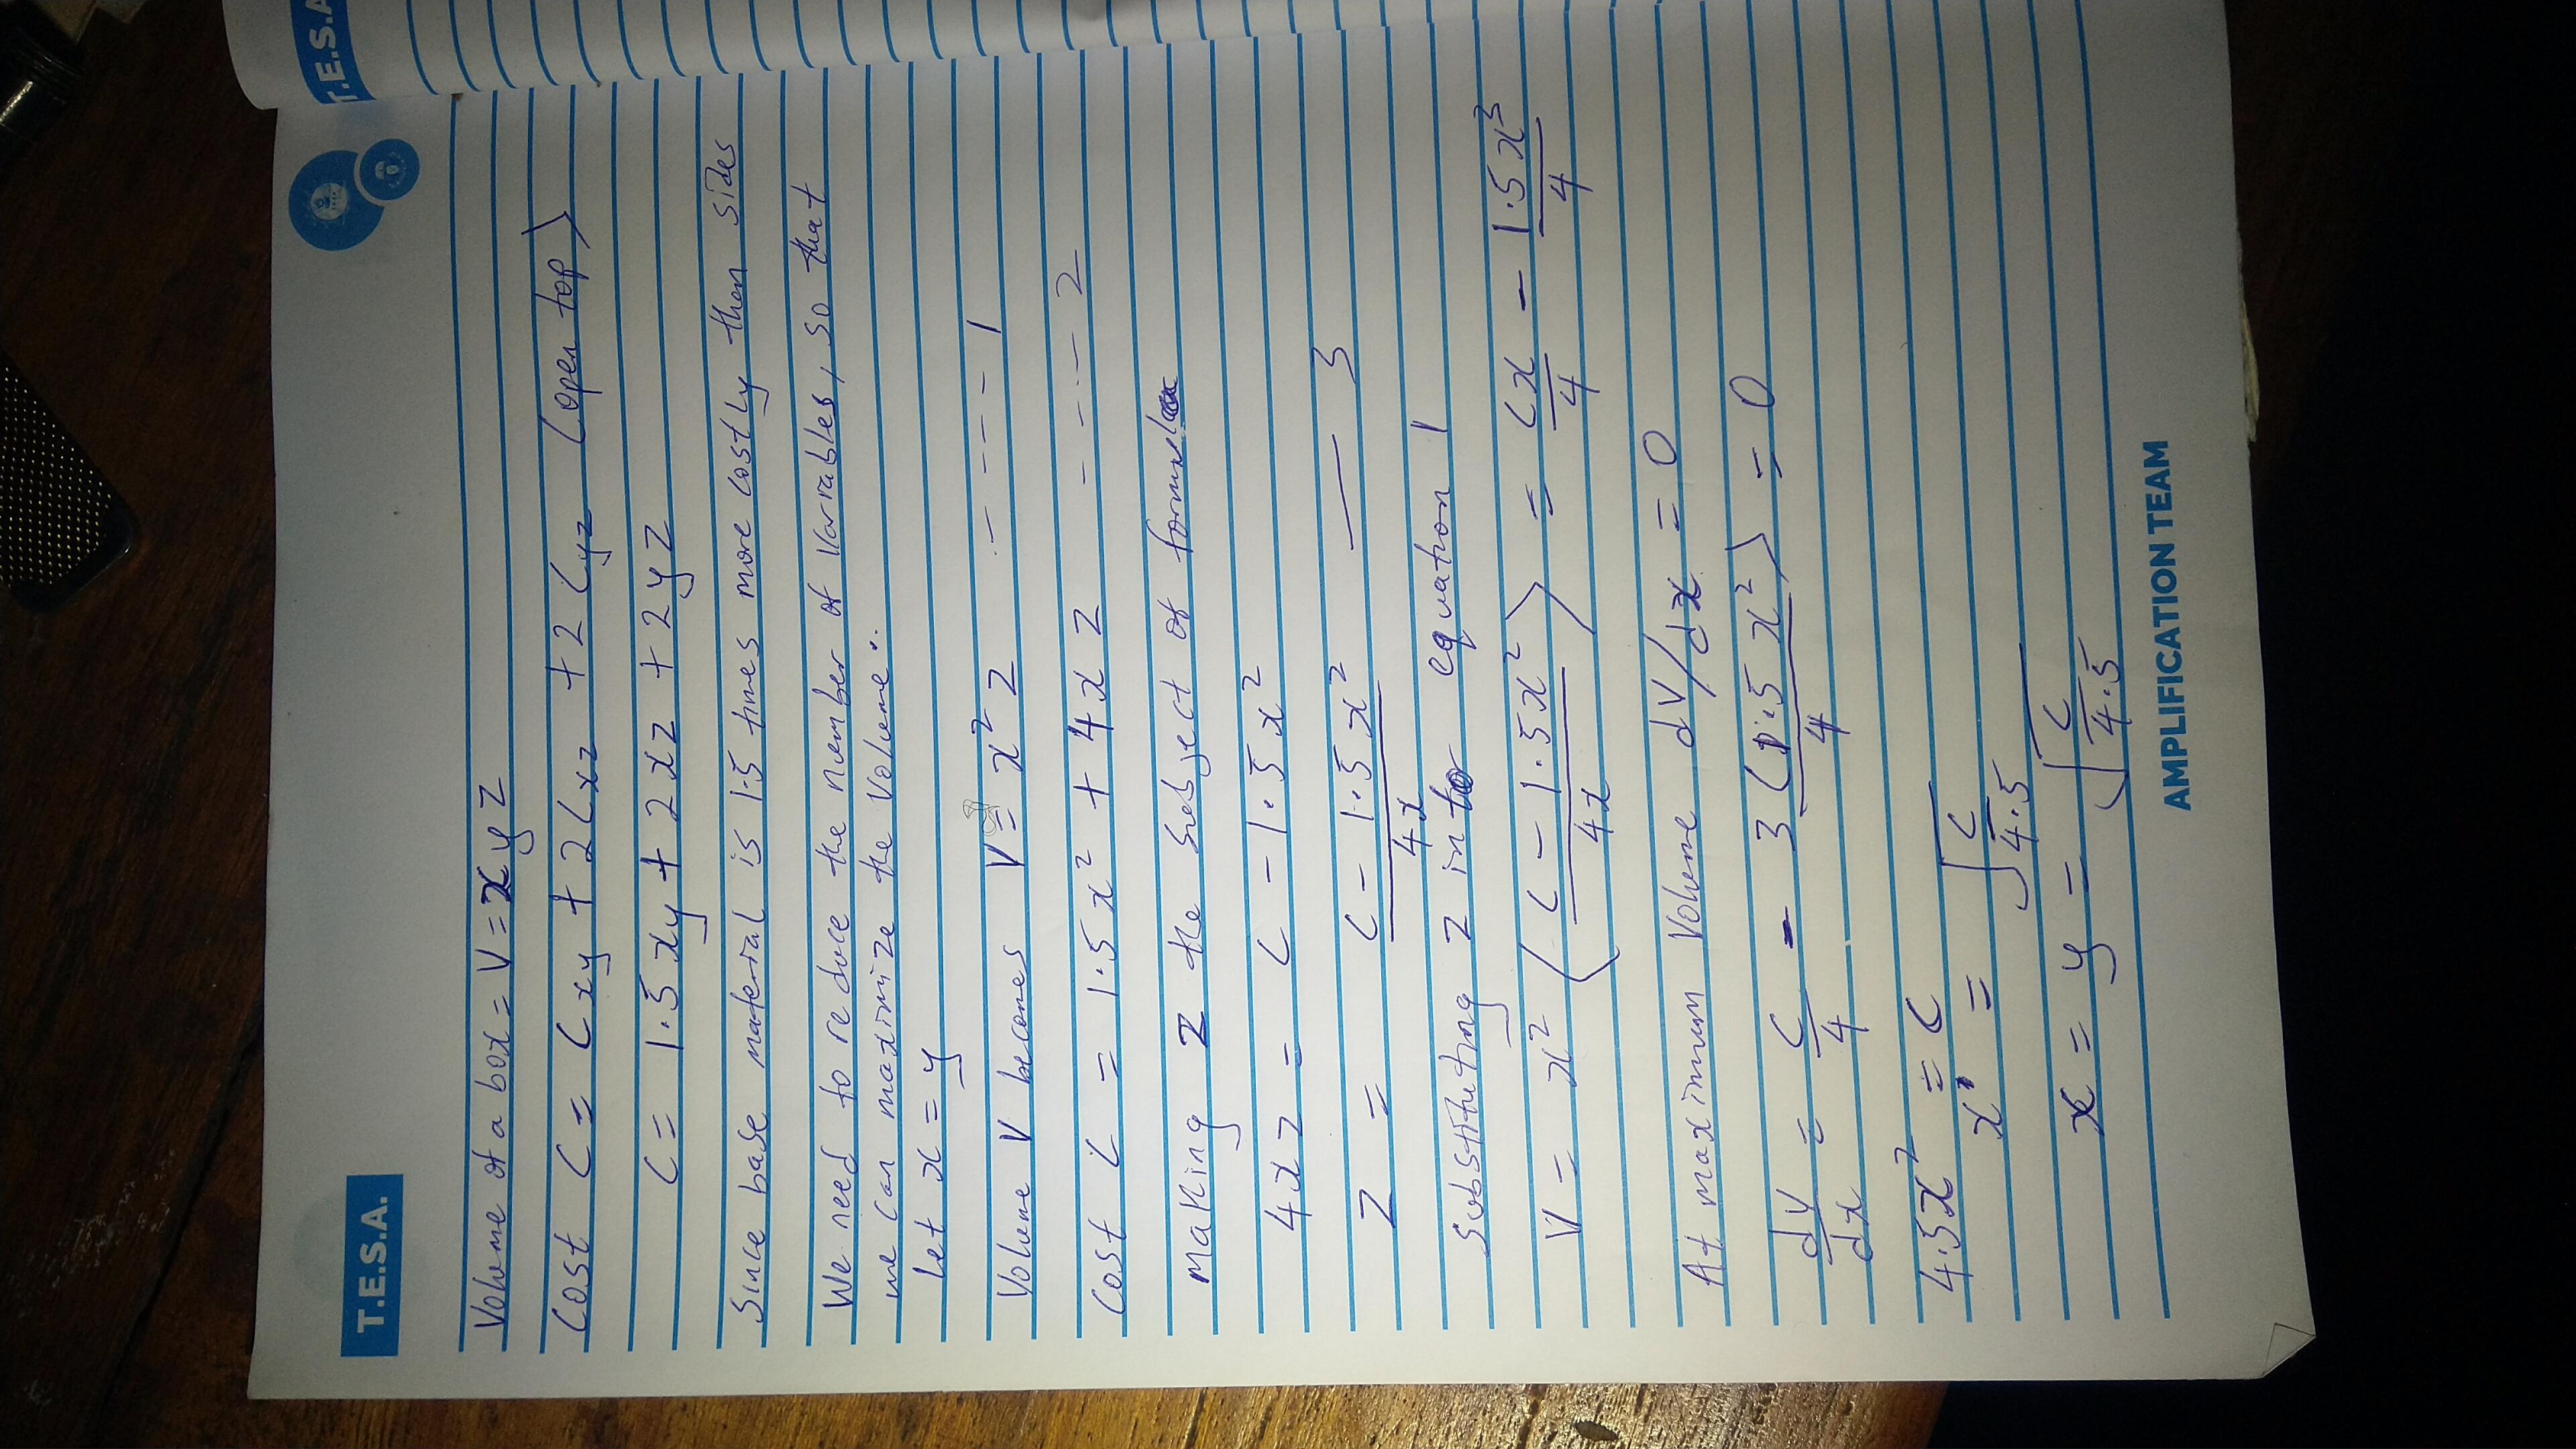 T.E.S.A.
T.E.S.A
Volume of a box = V = xyz
Cost C = Cxy + 2Cxz + 2Cyz (open top)
C = 1.5xy + 2xz + 2yz
Since base material is 1.5 times more costly then sides
We need to reduce the number of variables, so that
we can maximize the Volume..
Let x = y
Volume V becomes V = x²z .---- 1
Cost C = 1.5x² + 4xz ---- 2
Making z the subject of formula
4xz = C - 1.5x²
z = C - 1.5x² / 4x — 3
Substituting z into equation 1
V = x² (C - 1.5x² / 4x) = Cx/4 - 1.5x³/4
At maximum Volume dV/dx = 0
dV/dx = C/4 - 3(1.5x²)/4 = 0
4.5x² = C
x = √C/4.5
x = y = √C/4.5
AMPLIFICATION TEAM